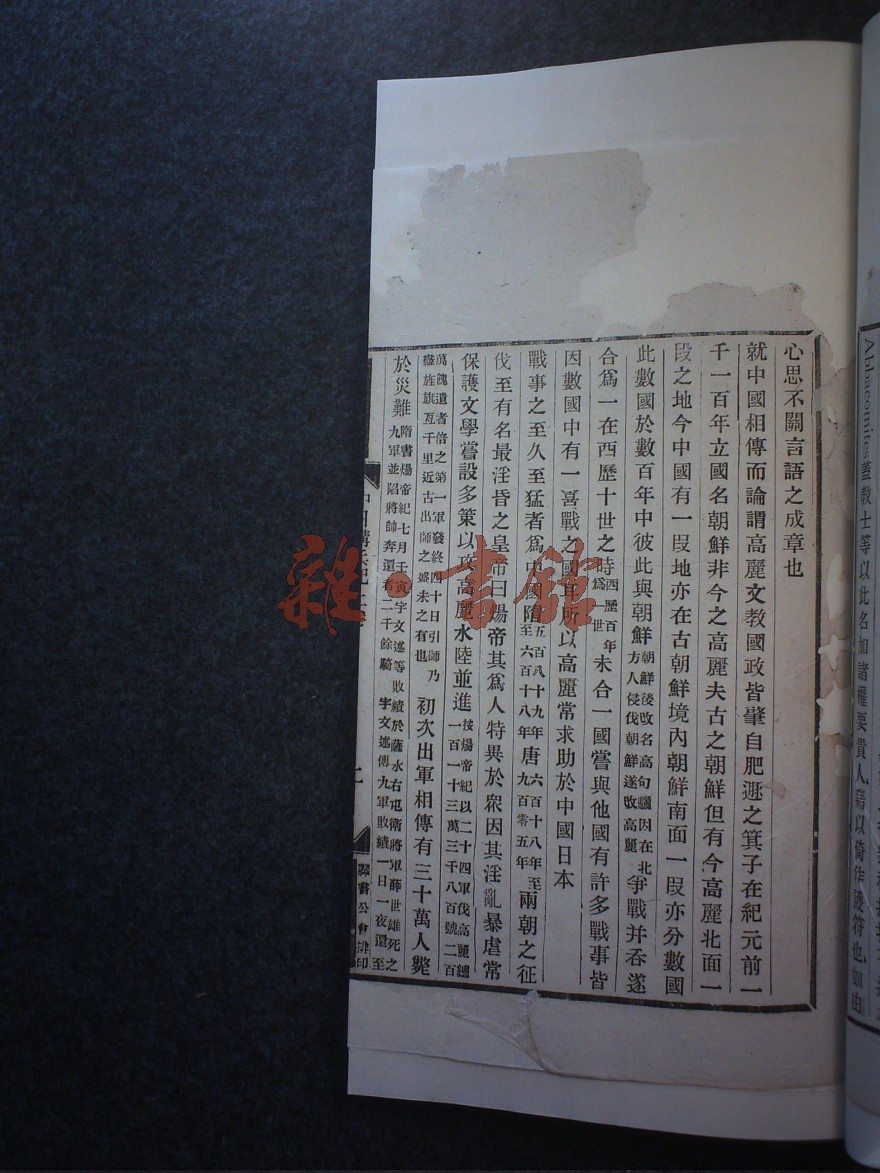 Alopacomites蓋教士等以此名加諸權要貴人藉以倚作護符也如由
心思不關言語之成章也
就中國相傳而論謂高麗文教國政皆肇自肥遯之箕子在紀元前一
千一百年立國名朝鮮非今之高麗夫古之朝鮮但有今高麗北面一
段之地今中國有一段地亦在古朝鮮境內朝鮮南面一段亦分數國
此數國於數百年中彼此與朝鮮朝鮮後改名高句驪因在北方人侵伐朝鮮遂改高麗爭戰并吞遂
合爲一在西歷十世之時西歷百年爲一世未合一國嘗與他國有許多戰事皆
因數國中有一喜戰之國其所以高麗常求助於中國日本
戰事之至久至猛者爲中國隋五百八十九年至六百十八年唐六百十八年至九百零五年兩朝之征
伐至有名最淫昏之皇帝曰煬帝其爲人特異於衆因其淫亂暴虐常
保護文學嘗設多策以攻高麗水陸並進按煬帝紀以二十四軍伐高麗總一百一十三萬三千八百號二百
萬餽遺者倍之第一軍發終四十日引師乃盡旌旗亙千里近古出師之盛未之有也初次出軍相傳有三十萬人斃
於災難隋書煬帝紀七月壬寅宇文述等敗績於薩水右屯衛將軍薛世雄死之九軍並陷將帥奔還者二千餘騎 宇文述傳九軍敗績一日一夜還至
譯書公會譯印